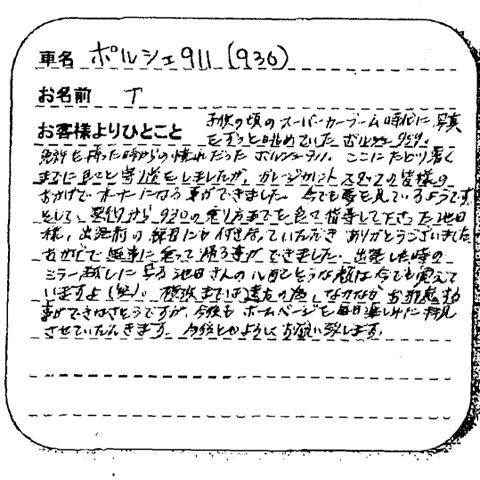 車名 ポルシェ911(930)
お名前 T
お客様よりひとこと 子供の頃のスーパーカーブーム時代に写真
をずっと眺めていた ポルシェ959。
免許を取った時からの憧れだった ポルシェ911。ここにたどり着く
までに色々と寄り道をしましたが、ガレージカレントスタッフの皆様の
おかげでオーナーになる事ができました。今でも夢を見ているようです。
そして、契約から930の乗り方までを色々指導して下さった池田
様、出発前の練習にも付き合っていただき ありがとうございました。
おかげで無事に乗って帰る事ができました。出発した時の
ミラー越しに写る池田さんの心配そうな顔は今でも覚えて
いますよ(笑)。横浜までは遠方の為、なかなか お邪魔する
事ができなさそうですが、今後も ホームページを毎日楽しみに拝見
させていただきます。今後ともよろしくお願い致します。